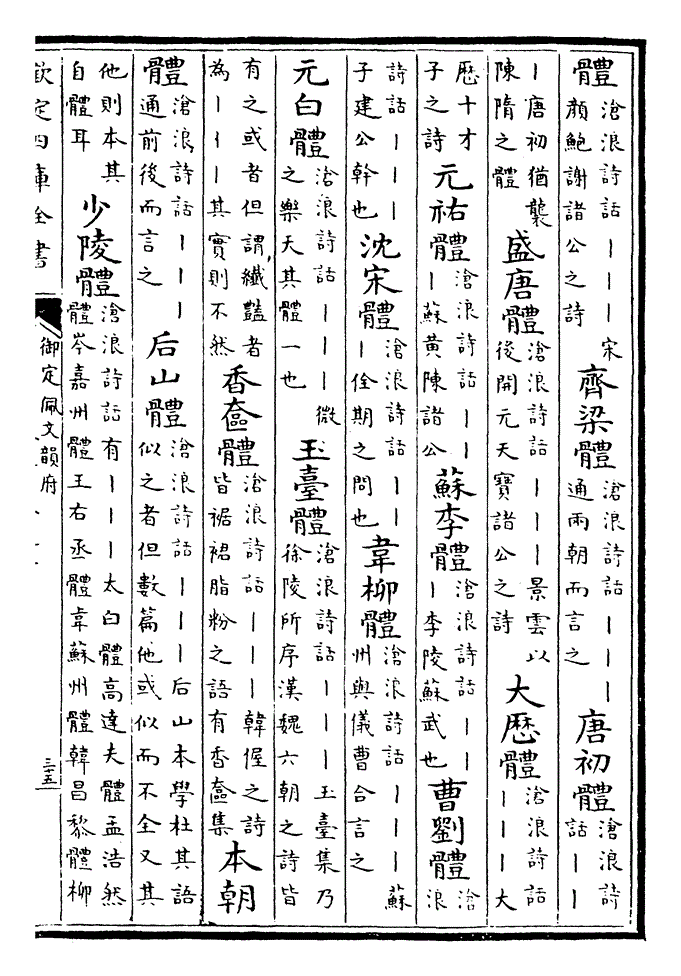 體滄浪詩話丨丨丨宋顔鮑謝諸公之詩齊梁體滄浪詩話丨丨丨通兩朝而言之唐初體滄浪詩話丨丨
丨唐初猶襲陳隋之體盛唐體滄浪詩話丨丨丨景雲以後開元天寶諸公之詩大厯體滄浪詩話丨丨丨大
厯十才子之詩元祐體滄浪詩話丨丨丨蘇黄陳諸公蘇李體滄浪詩話丨丨丨李陵蘇武也曹劉體滄浪
詩話丨丨丨子建公幹也沈宋體滄浪詩話丨丨丨佺期之問也韋柳體滄浪詩話丨丨丨蘇州與儀曹合言之
元白體滄浪詩話丨丨丨微之樂天其體一也玉臺體滄浪詩話丨丨丨玉臺集乃徐陵所序漢魏六朝之詩皆
有之或者但謂纖豔者為丨丨丨其實則不然香奩體滄浪詩話丨丨丨韓偓之詩皆裾裙脂粉之語有香奩集本朝
體滄浪詩話丨丨丨通前後而言之后山體滄浪詩話丨丨丨后山本學杜其語似之者但數篇他或似而不全又其
他則本其自體耳少陵體滄浪詩話有丨丨丨太白體高達夫體孟浩然體岑嘉州體王右丞體韋蘇州體韓昌黎體柳
欽定四庫全書
御定佩文韻府
三五